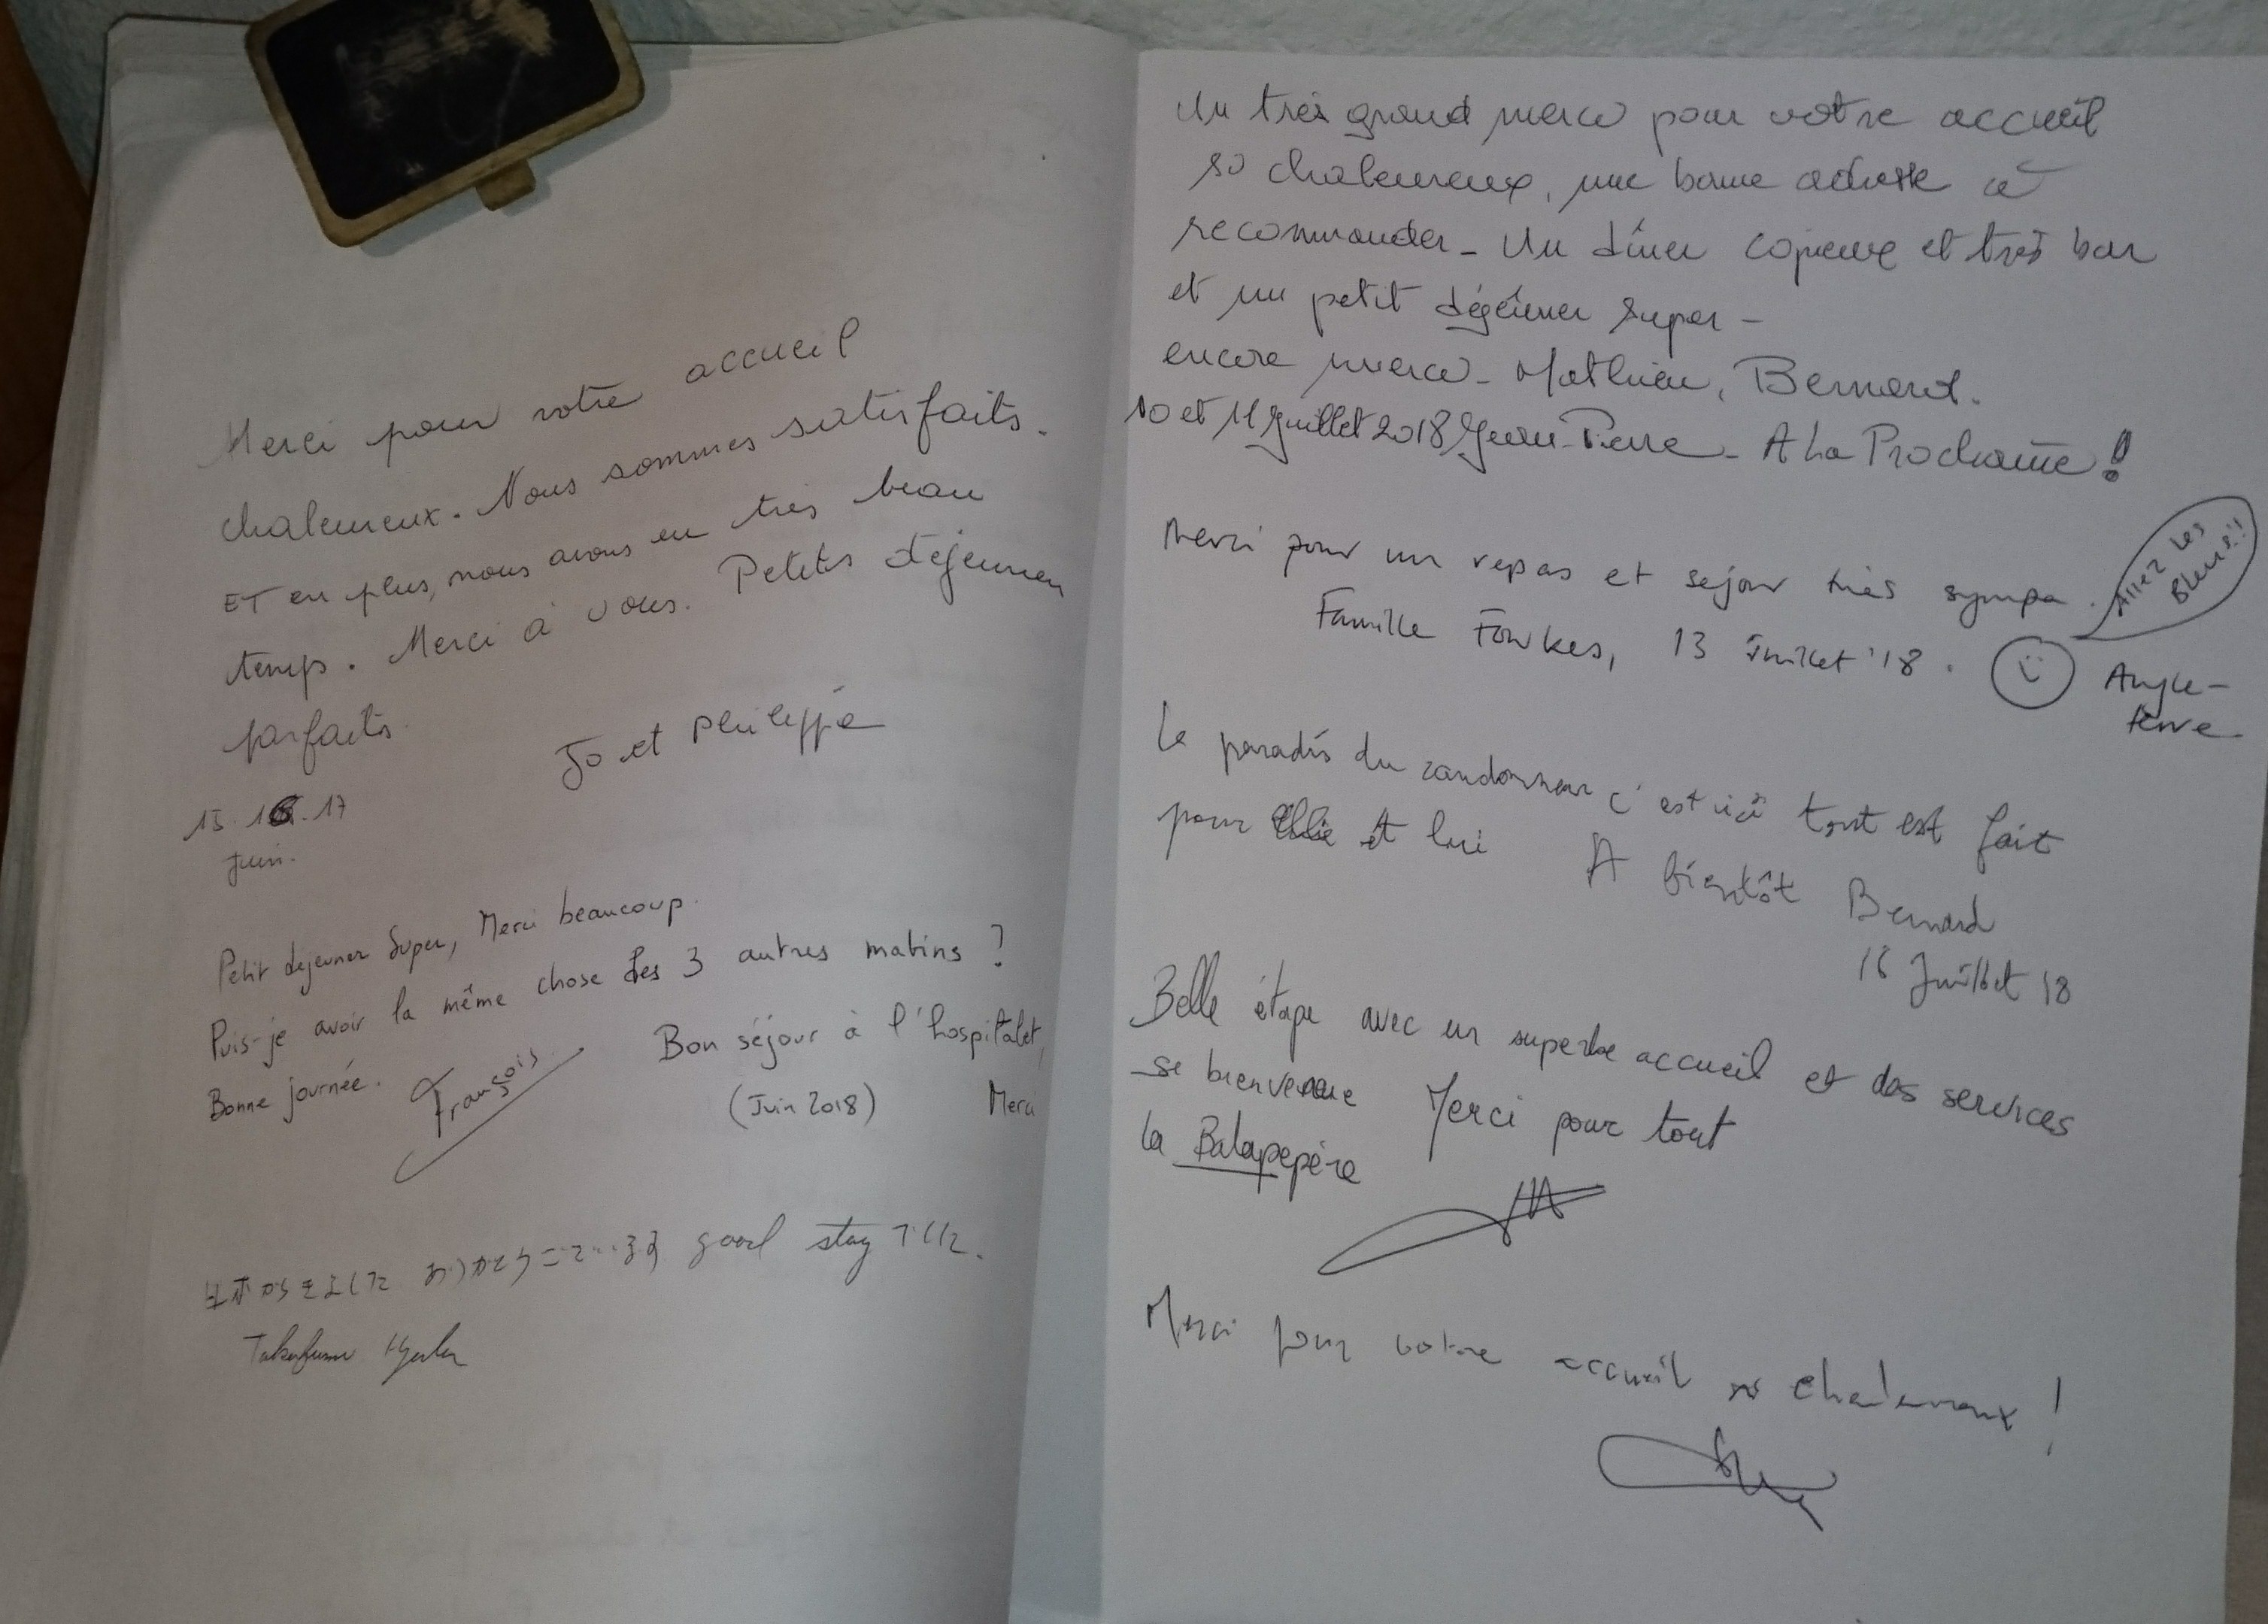 Merci pour votre accueil
chaleureux. Nous sommes satisfaits.
ET en plus, nous avons eu très beau
temps. Merci à vous. Petits déjeuner
parfaits.
Jo et Philippe
15.16.17
Juin.
Petit dejeuner Super, Merci beaucoup.
Puis-je avoir la même chose les 3 autres matins ?
Bonne journée. François
Bon séjour à l'hospitalet,
(Juin 2018) Merci
おりがとうございます good stay でした.
Un très grand merci pour votre accueil
si chaleureux, une bonne adresse à
recommander - Un dîner copieux et très bon
et un petit déjeûner super -
encore merci - Mathieu, Bernard.
10 et 11 Juillet 2018 Jean-Pierre - A La Prochaine !
Merci pour un repas et sejour très sympa.
Allez Les
Bleus!!
Famille Fowkes, 13 Juillet '18. Angle-
terre.
Le paradis du randonneur c'est ici tout est fait
pour et lui A bientôt Bernard
16 Juillet 18
Belle étape avec un superbe accueil et des services
Merci pour tout
la Balapepère
Merci pour votre accueil si chaleureux !